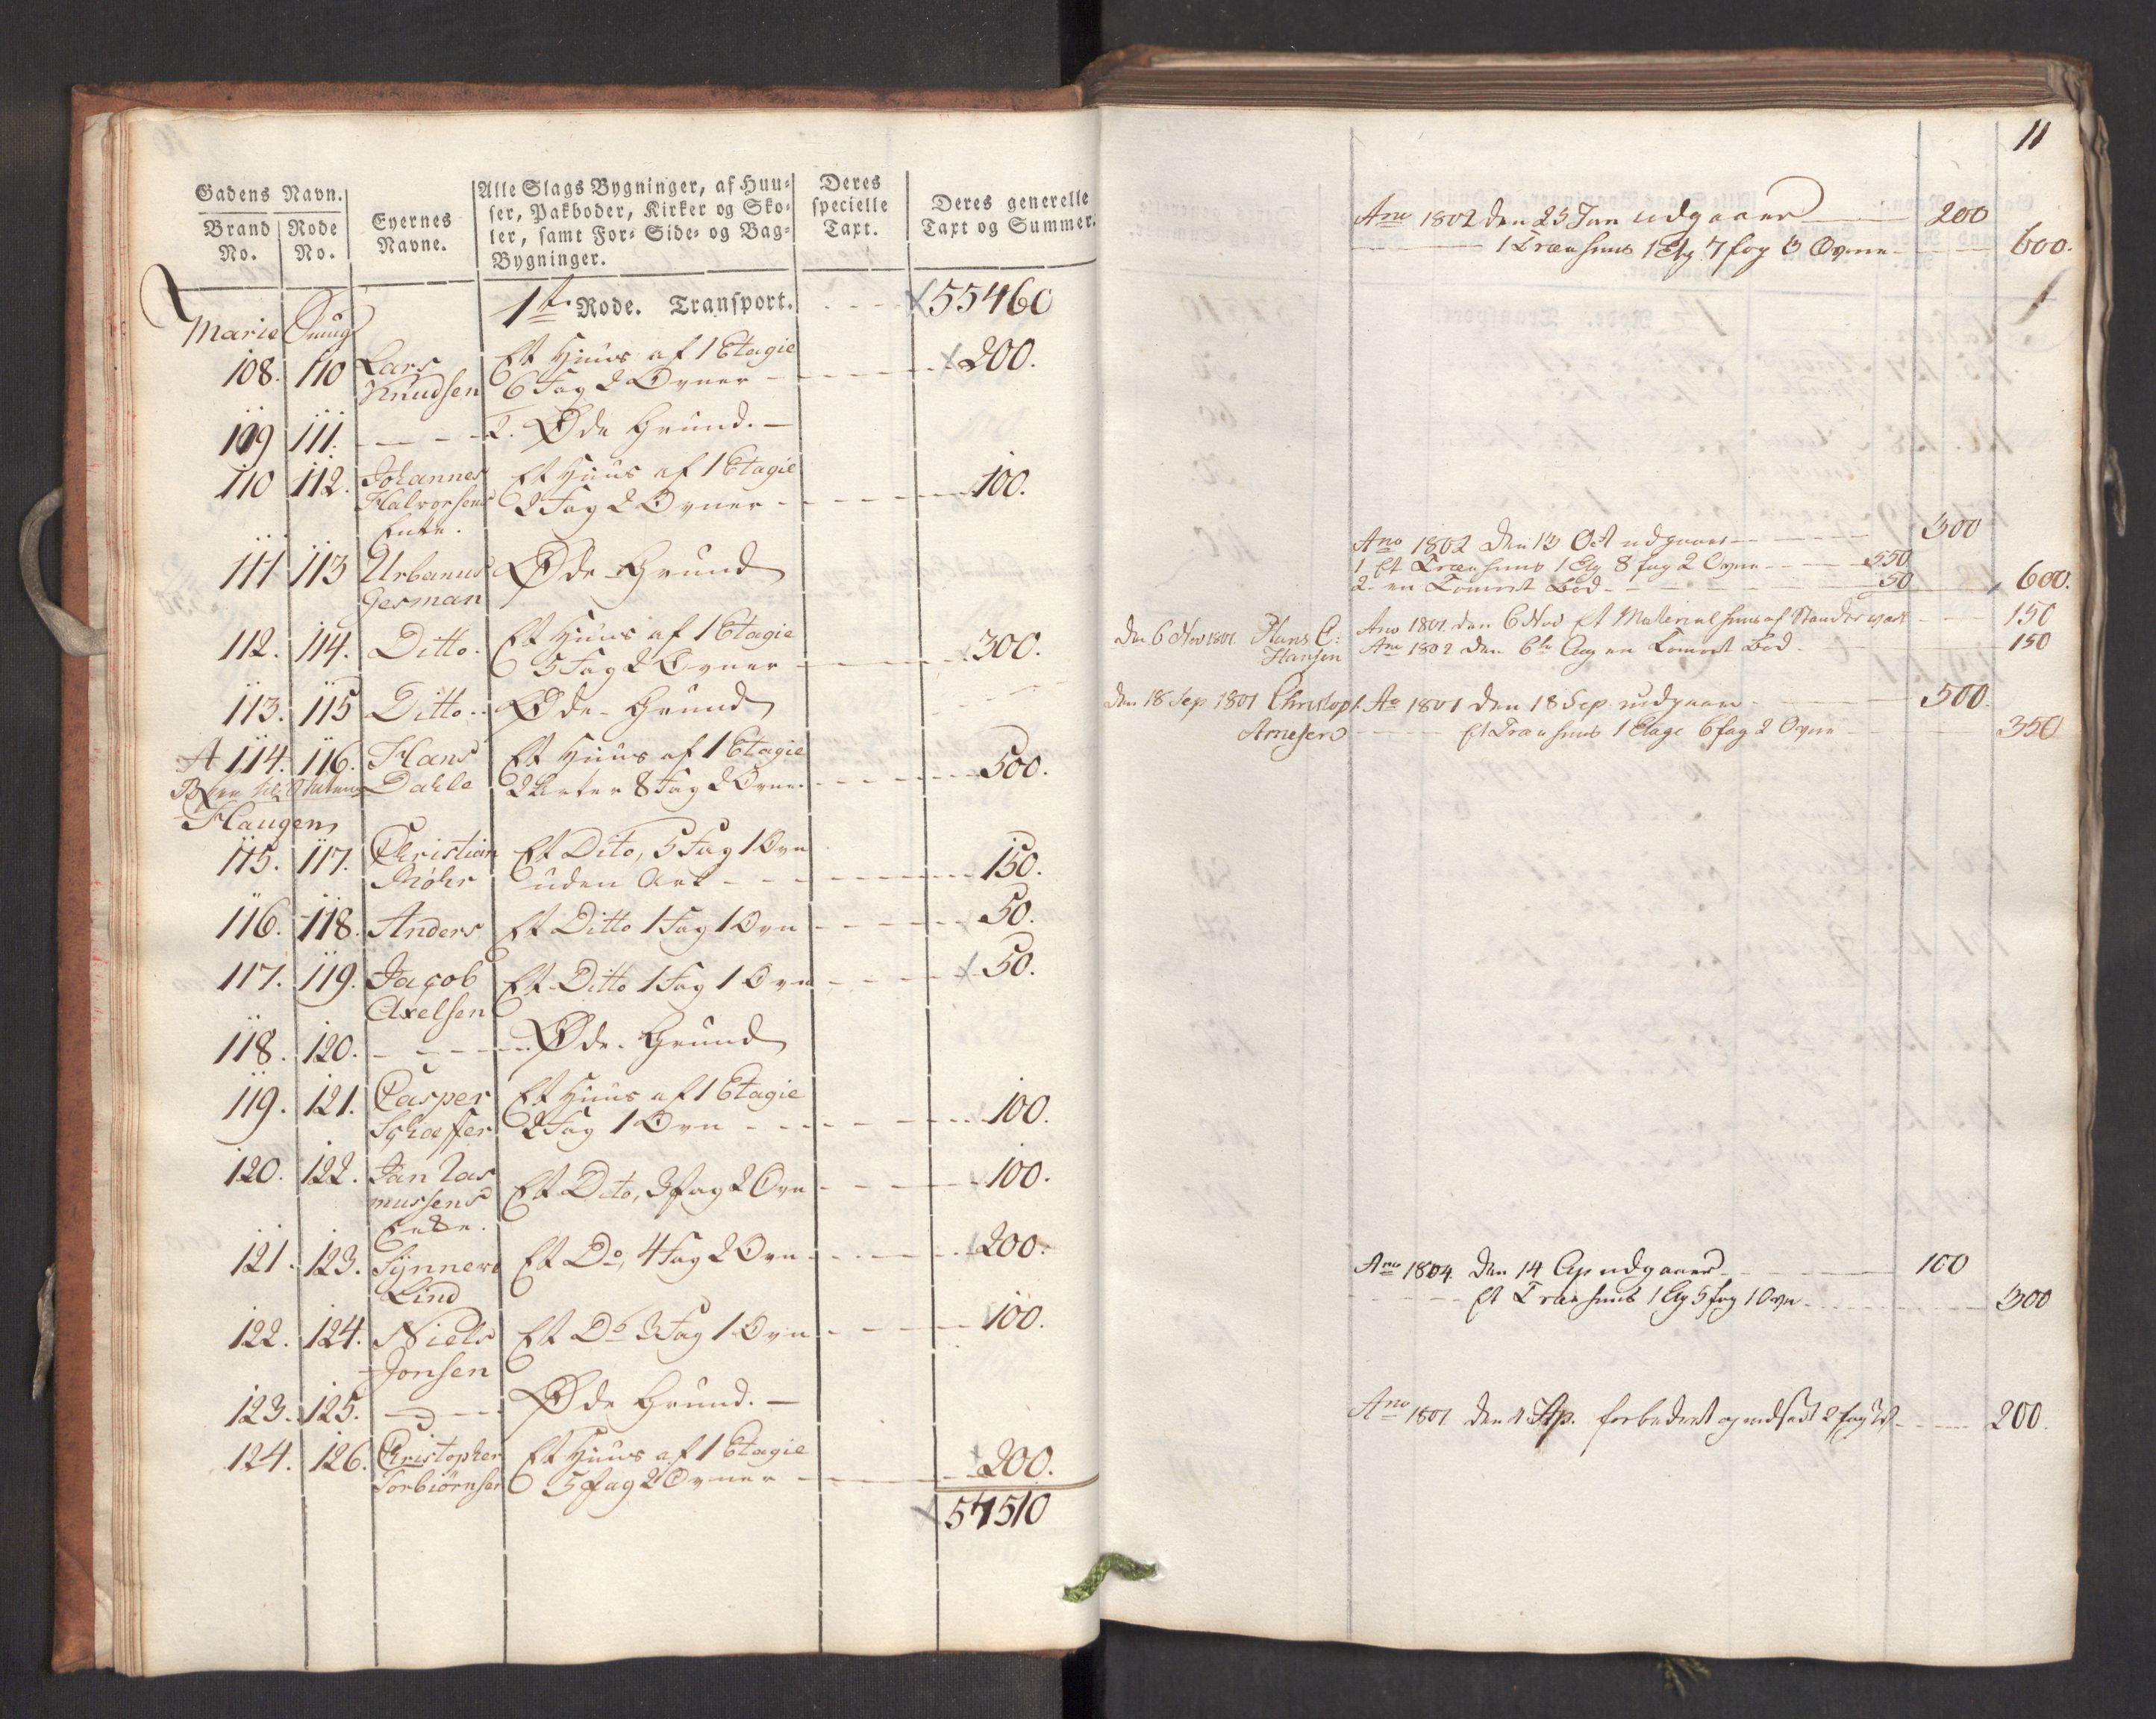 Gadens Navn.
Brand No.
Rode No.
Eyernes Navne.
Alle Slags Bygninger, af Huu-
ser, Pakboder, Kirker og Sko-
ler, samt For- Side- og Bag-
Bygninger.
Deres specielle Taxt.
Deres generelle Taxt og Summer.
1te Rode. Transport. 55460
Marie Smug
108. 110 Lars Et Huus af 1 Etagie
Knudsen 6 Fag 2 Ovner - 200.
109 111. - - - Øde Grund. -
110 112. Johannes Et Huus af 1 Etagie
Halvorsens 2 Fag 2 Ovner - 100.
Enke.
111 113 Urbanus Øde Grund
German
112. 114. Ditto. Et Huus af 1 Etagie
5 Fag 2 Ovner - 300.
113. 115 Ditto. Øde Grund
A 114. 116. Hans Et Huus af 1 Etagie
Dahle 8 Fag 2 Ovne. 500.
Haugen
115. 117. Christian Et Dito, 5 Fag 1 Ovn
Møhr uden - 150.
116. 118. Anders Et Ditto 1 Fag 1 Ovn - 50.
117. 119. Jacob Et Ditto 1 Fag 1 Ovn - 50.
Axelsen
118. 120. - - - Øde Grund
119. 121. Casper Et Huus af 1 Etagie
Schæffer 2 Fag 1 Ovn - 100.
120. 122. Jan Ras
mussens Et Dito, 3 Fag 2 Ovn - 100.
Enke.
121. 123. Synneve Et Do, 4 Fag 2 Ovn - 200.
Lind
122. 124. Niels Et Do 3 Fag 1 Ovn - 100.
Jonsen
123. 125. - - Øde Grund. -
124. 126. Christopher Et Huus af 1 Etagie
Torbiørnsen 5 Fag 2 Ovner - 200.
57510
11
Ano 1802 den 25 Jan udgaaer - 200
1 Træehuus 1 Etg 7 fag 3 Ovne - 600.
Ano 1802 den 13 Oct udgaaer - 300
1 Et Træehuus 1 Etg 8 fag 2 Ovne - 550
2 en Tømret Bod - 50 600.
Den 6 Nov 1801 Hans C: Ano 1801 den 6 Nov Et Materialhuus af - 150
Hansen Ano 1802 den 6te Aug en Tømret Bod - 150
Den 18 Sep 1801 Christoph. Ao 1801 den 18 Sep. udgaaer - 500.
Arnesen Et Træehuus 1 Etage 6 fag 2 Ovne - 350
Ano 1804 den 14 Ap udgaaer - 100
Et Træehuus 1 Etg 5 fag 1 Ovn - 300
Ano 1801 den Sep. forbedret og 2 fag - 200.